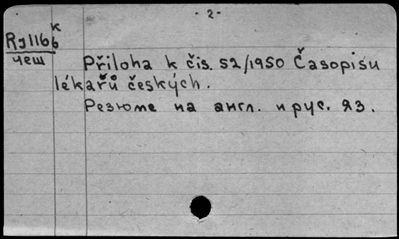 - 2 -
Ry116б к
чеш
Příloha k čís. 52/1950 Časopisu
lékařů českých.
Резюме на англ. и рус. яз.